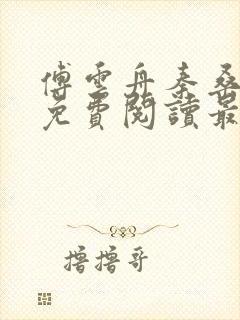 傅雲舟秦桑
免費閱讀最
撸撸哥